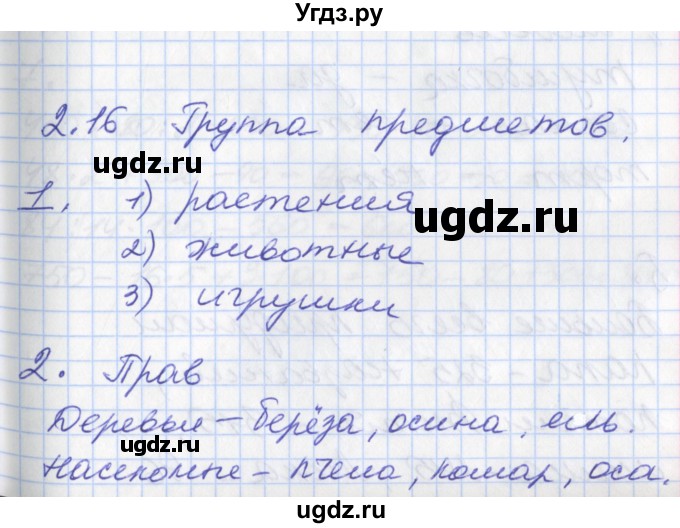 Угдз.ру
2.16 Группа предметов.
ugdz.ru
1. 1) растения
ugdz.ru
2) животные
3) игрушки
ugdz.ru
2. Прав
Деревья – берёза, осина, ель.
Насекомые – пчела, комар, оса.
ugdz.ru
ugdz.ru